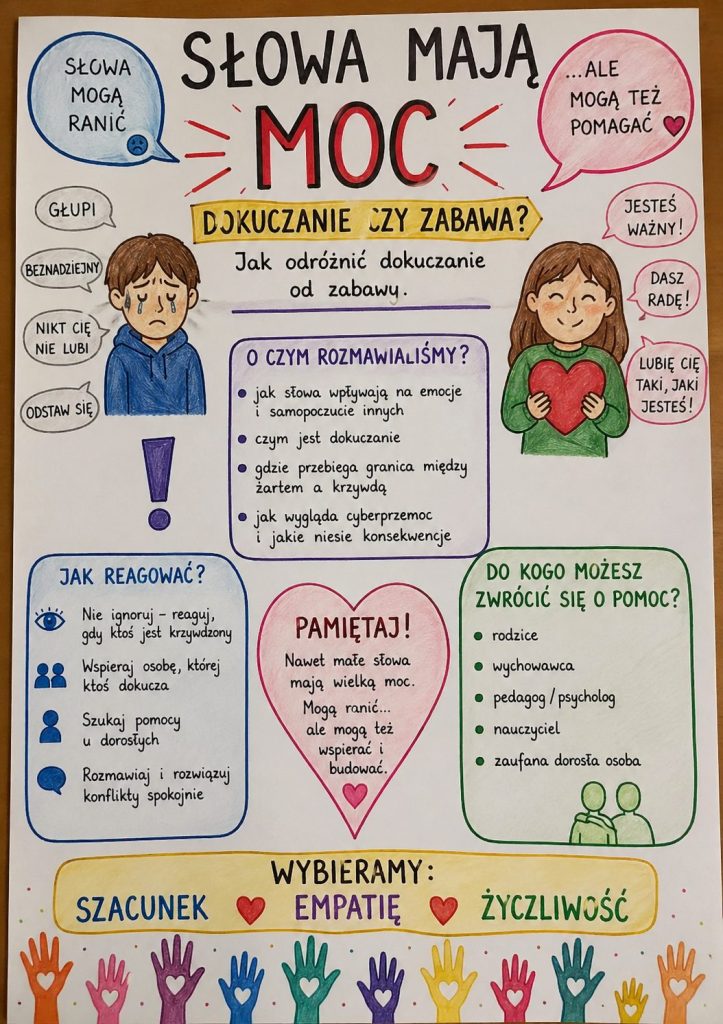 SŁOWA
MOGĄ
RANIĆ
SŁOWA MAJĄ
MOC
...ALE
MOGĄ TEŻ
POMAGAĆ
DOKUCZANIE CZY ZABAWA?
Jak odróżnić dokuczanie
od zabawy.
GŁUPI
BEZNADZIEJNY
NIKT CIĘ
NIE LUBI
ODSTAW SIĘ
JESTEŚ
WAŻNY!
DASZ
RADĘ!
LUBIĘ CIĘ
TAKI, JAKI
JESTEŚ!
O CZYM ROZMAWIALIŚMY?
• jak słowa wpływają na emocje
i samopoczucie innych
• czym jest dokuczanie
• gdzie przebiega granica między
żartem a krzywdą
• jak wygląda cyberprzemoc
i jakie niesie konsekwencje
!
JAK REAGOWAĆ?
Nie ignoruj – reaguj,
gdy ktoś jest krzywdzony
Wspieraj osobę, której
ktoś dokucza
Szukaj pomocy
u dorosłych
Rozmawiaj i rozwiązuj
konflikty spokojnie
PAMIĘTAJ!
Nawet małe słowa
mają wielką moc.
Mogą ranić...
ale mogą też
wspierać i
budować.
DO KOGO MOŻESZ
ZWRÓCIĆ SIĘ O POMOC?
• rodzice
• wychowawca
• pedagog / psycholog
• nauczyciel
• zaufana dorosła osoba
WYBIERAMY:
SZACUNEK EMPATIĘ ŻYCZLIWOŚĆ